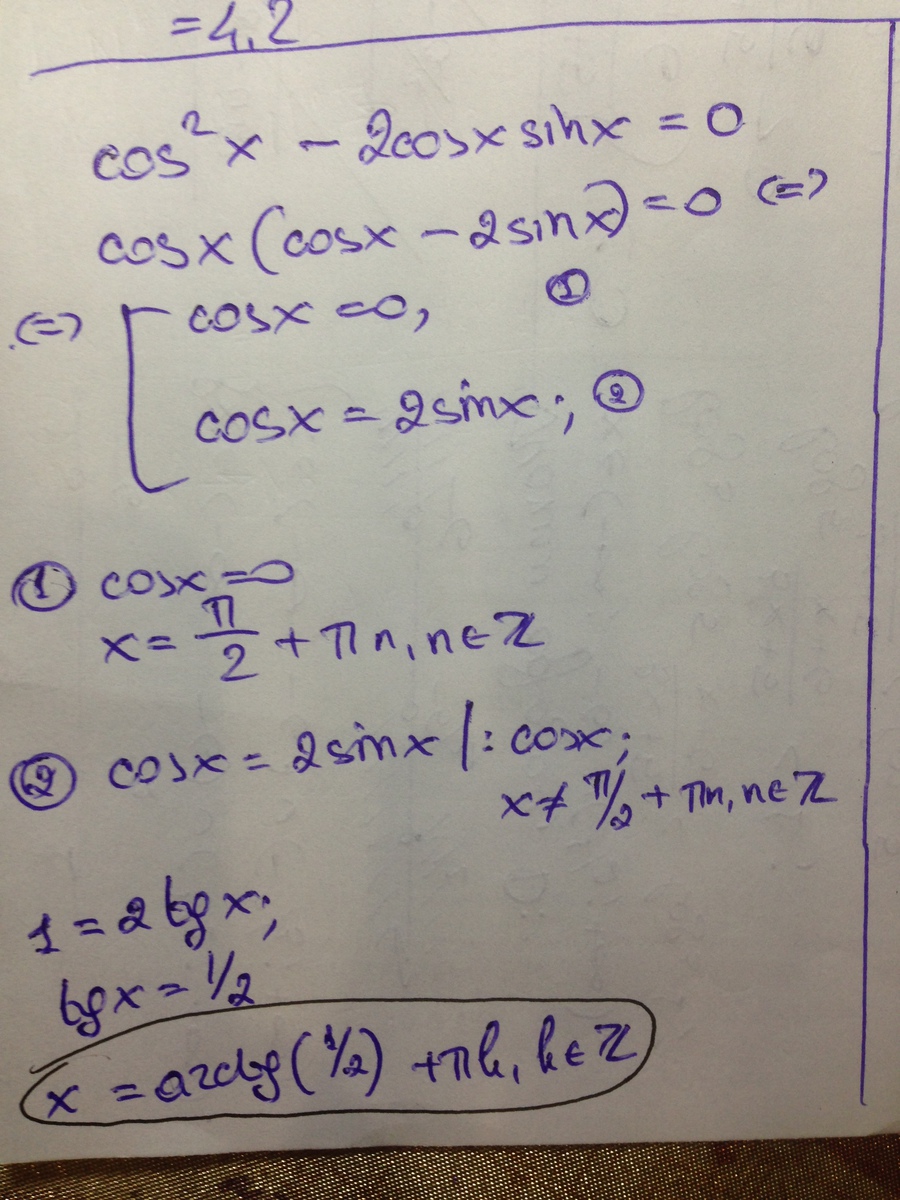 =4,2
cos²x - 2cosx sinx = 0
cosx (cosx - 2sinx) = 0 <=>
<=> [ cosx = 0, ①
cosx = 2sinx; ②
① cosx = 0
x = π/2 + πn, n∈Z
② cosx = 2sinx |: cosx;
x ≠ π/2 + πn, n∈Z
1 = 2tgx;
tgx = 1/2
x = arctg(1/2) + πk, k∈Z